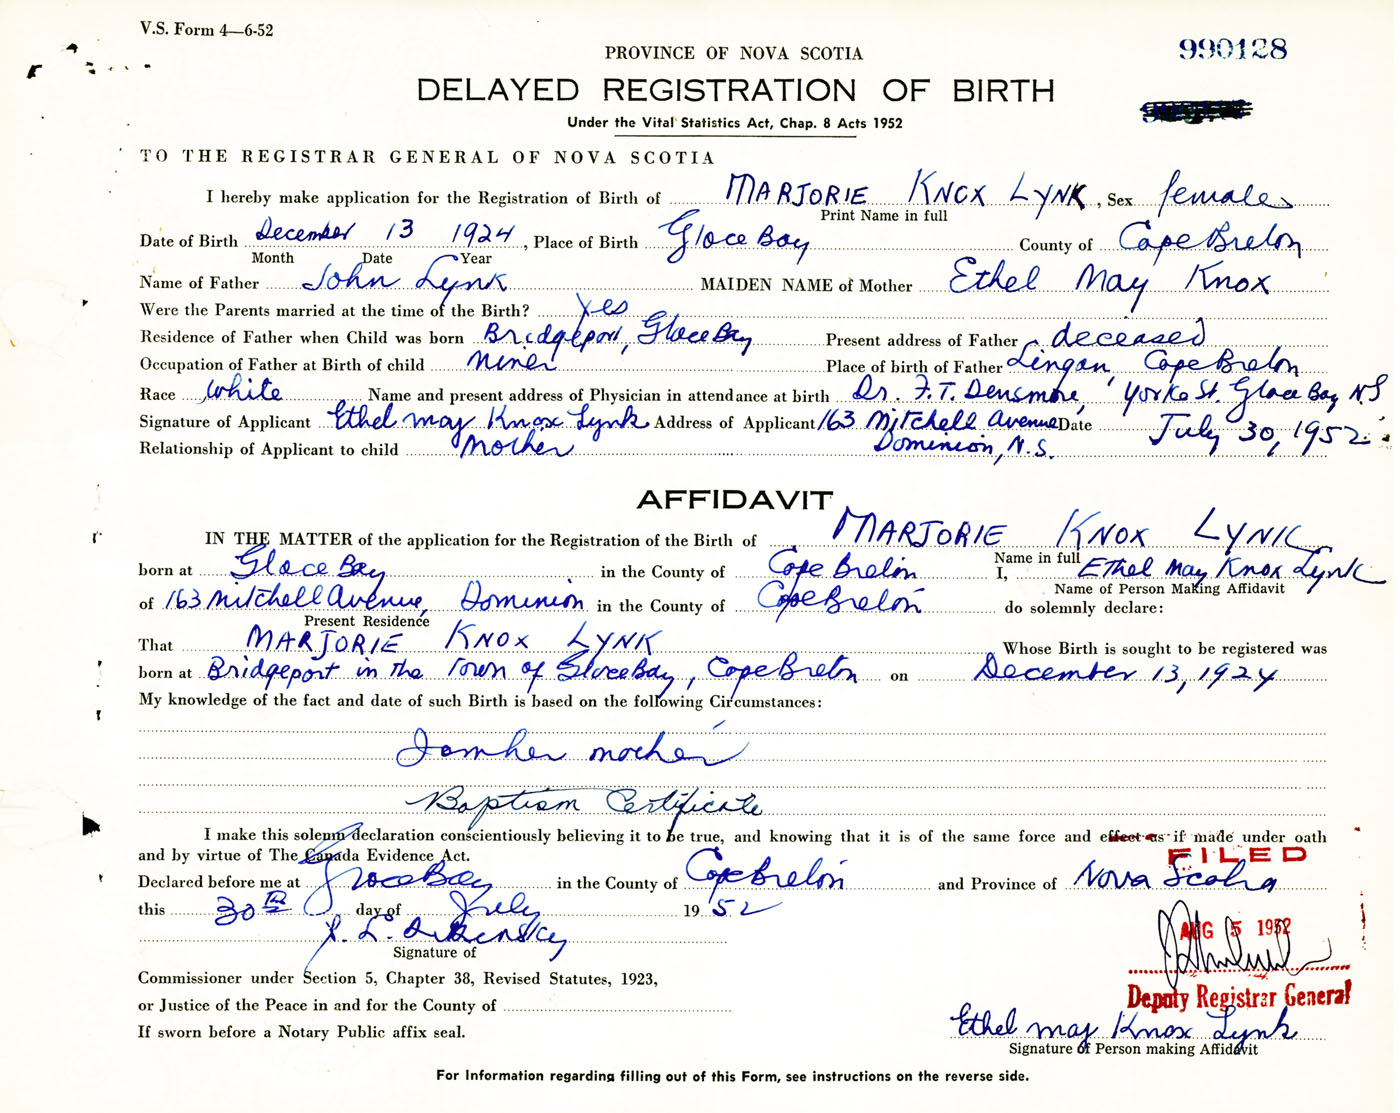 V.S. Form 4—6-52
990128
PROVINCE OF NOVA SCOTIA
DELAYED REGISTRATION OF BIRTH
Under the Vital Statistics Act, Chap. 8 Acts 1952
TO THE REGISTRAR GENERAL OF NOVA SCOTIA
I hereby make application for the Registration of Birth of MARJORIE KNOX LYNK, Sex female
Print Name in full
Date of Birth December 13 1924, Place of Birth Glace Bay County of Cape Breton
Month Date Year
Name of Father John Lynk MAIDEN NAME of Mother Ethel May Knox
Were the Parents married at the time of the Birth? Yes
Residence of Father when Child was born Bridgeport, Glace Bay Present address of Father deceased
Occupation of Father at Birth of child miner Place of birth of Father Lingan, Cape Breton
Race white Name and present address of Physician in attendance at birth Dr. F.T. Densmore, Yorke St. Glace Bay N.S
Signature of Applicant Ethel May Knox Lynk Address of Applicant 163 Mitchell Avenue Date July 30, 1952
Relationship of Applicant to child Mother Dominion, N.S.
AFFIDAVIT
IN THE MATTER of the application for the Registration of the Birth of MARJORIE KNOX LYNK
Name in full
born at Glace Bay in the County of Cape Breton I, Ethel May Knox Lynk
Name of Person Making Affidavit
of 163 Mitchell Avenue, Dominion in the County of Cape Breton do solemnly declare:
Present Residence
That MARJORIE KNOX LYNK Whose Birth is sought to be registered was
born at Bridgeport in the Town of Glace Bay, Cape Breton on December 13, 1924
My knowledge of the fact and date of such Birth is based on the following Circumstances:
I am her mother
Baptism Certificate
I make this solemn declaration conscientiously believing it to be true, and knowing that it is of the same force and effect as if made under oath
and by virtue of The Canada Evidence Act.
FILED
Declared before me at Glace Bay in the County of Cape Breton and Province of Nova Scotia
this 30th day of July 1952
AUG 5 1952
Signature of
Commissioner under Section 5, Chapter 38, Revised Statutes, 1923,
Deputy Registrar General
or Justice of the Peace in and for the County of
Ethel May Knox Lynk
If sworn before a Notary Public affix seal.
Signature of Person making Affidavit
For Information regarding filling out of this Form, see instructions on the reverse side.